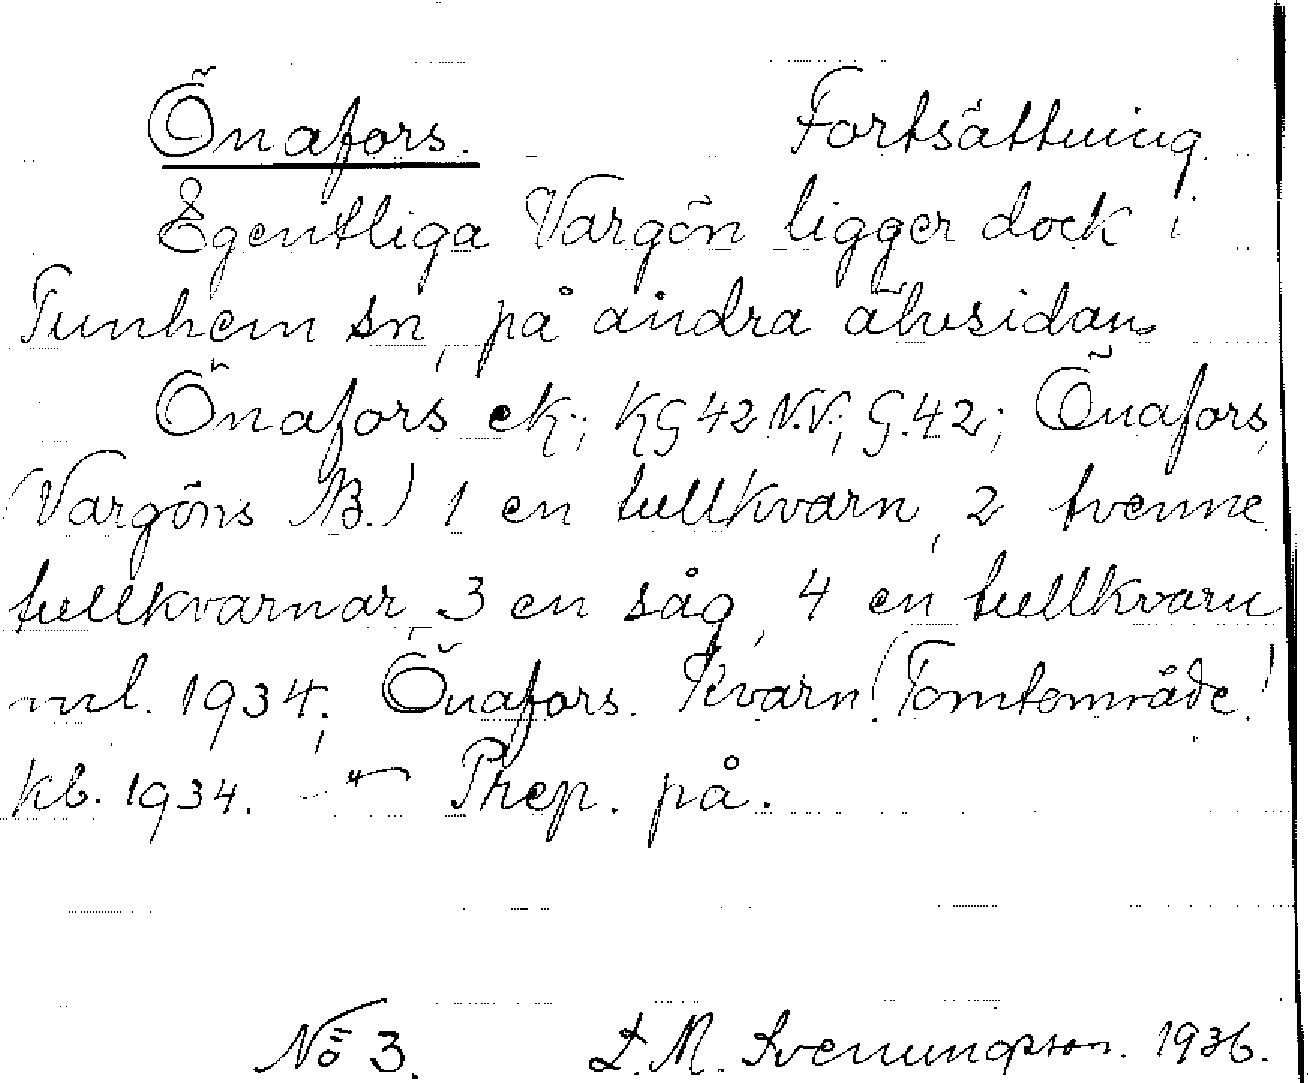 Önafors. Fortsättning
Egentliga Vargön ligger dock i
Tunhem sn, på andra älvsidan.
Önafors ek; KG 42 N.V; G. 42; Önafors,
(Vargöns AB.) 1 en tullkvarn, 2 tvenne
tullkvarnar, 3 en såg, 4 en tullkvarn
ml. 1934; Önafors. Kvarn (Tomtområde)
kb. 1934. — Prep. på.
No 3. D. M. Svenungsson. 1936.